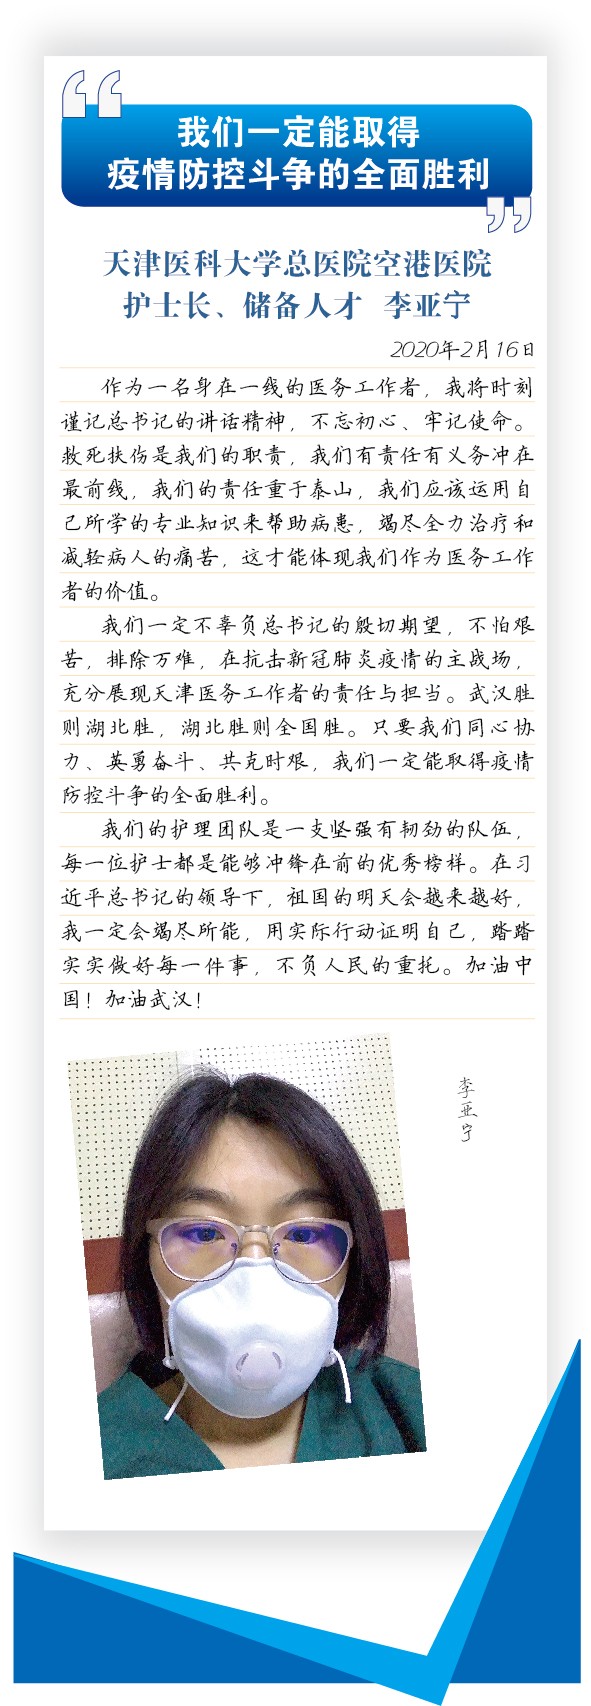 我们一定能取得
疫情防控斗争的全面胜利
天津医科大学总医院空港医院
护士长、储备人才 李亚宁
2020年2月16日
作为一名身在一线的医务工作者，我将时刻
谨记总书记的讲话精神，不忘初心、牢记使命。
救死扶伤是我们的职责，我们有责任有义务冲在
最前线，我们的责任重于泰山，我们应该运用自
己所学的专业知识来帮助病患，竭尽全力治疗和
减轻病人的痛苦，这才能体现我们作为医务工作
者的价值。
我们一定不辜负总书记的殷切期望，不怕艰
苦，排除万难，在抗击新冠肺炎疫情的主战场，
充分展现天津医务工作者的责任与担当。武汉胜
则湖北胜，湖北胜则全国胜。只要我们同心协
力、英勇奋斗、共克时艰，我们一定能取得疫情
防控斗争的全面胜利。
我们的护理团队是一支坚强有韧劲的队伍，
每一位护士都是能够冲锋在前的优秀榜样。在习
近平总书记的领导下，祖国的明天会越来越好，
我一定会竭尽所能，用实际行动证明自己，踏踏
实实做好每一件事，不负人民的重托。加油中
国！加油武汉！
李亚宁